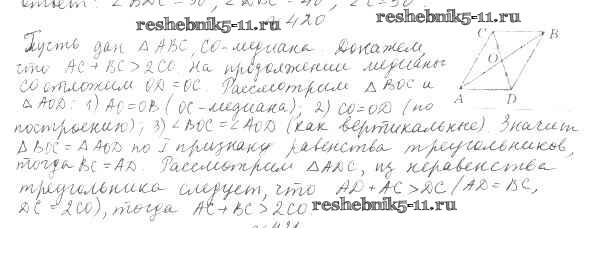 reshebnik5-11.ru
420
Пусть дан △ABC, CO-медиана. Докажем,
что AC+BC>2CO. На продолжении медианы
CO отложим OD=OC. Рассмотрим △BOC и
△AOD: 1) AO=OB (OC-медиана); 2) CO=OD (по
построению); 3) ∠BOC=∠AOD (как вертикальные). Значит
△BOC=△AOD по I признаку равенства треугольников,
тогда BC=AD. Рассмотрим △ADC, из неравенства
треугольника следует, что AD+AC>DC (AD=BC,
DC=2CO), тогда AC+BC>2CO
reshebnik5-11.ru
C B
O
A D